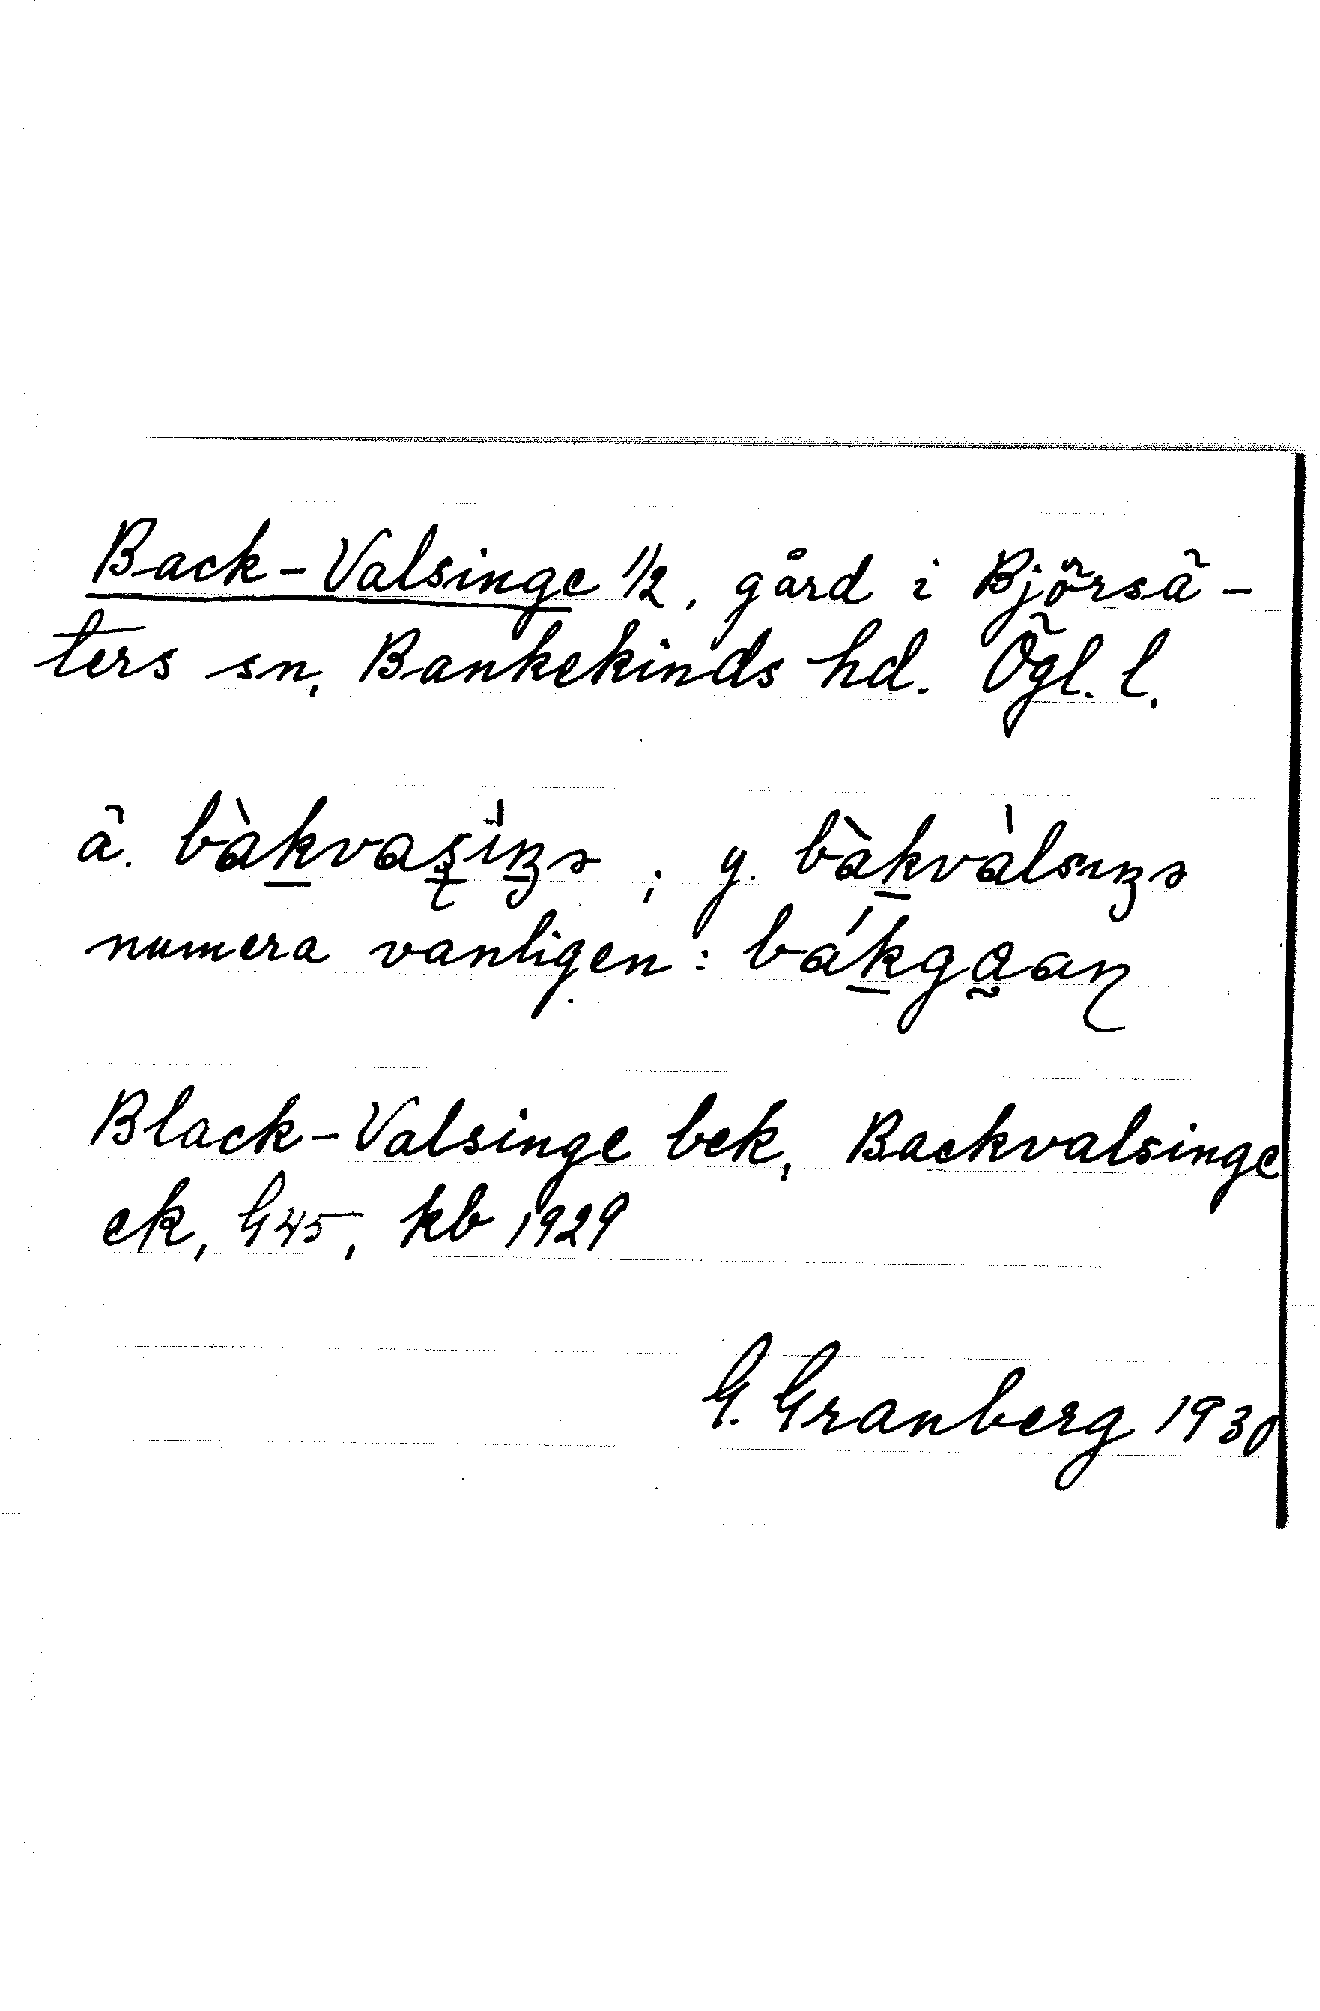 Back-Valsinge 1/2, gård i Björsä-
ters sn, Bankekinds hd. Ögl. l.
ä. ; y.
numera vanligen:
Black-Valsinge bek, Backvalsinge
ek, G45, kb 1929
G. Granberg 1930